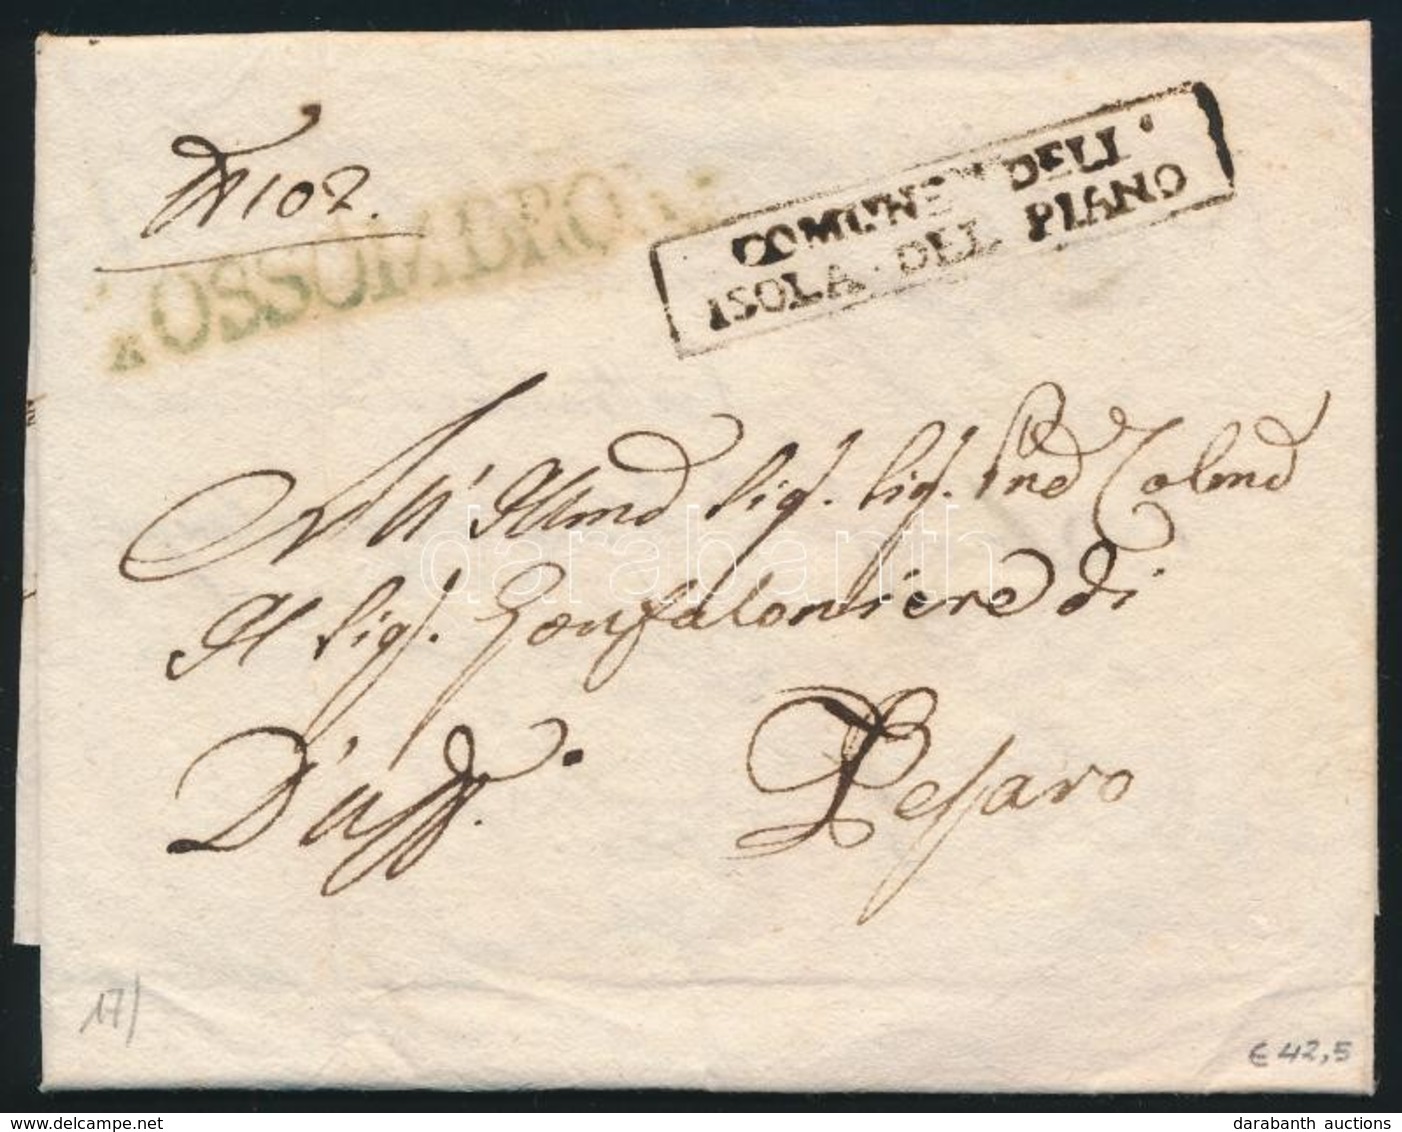 N 102.
FOSSOMBRONE
COMUNE DELL'
ISOLA DEL PIANO
All' Illmo Sig. Sig. Pne Colmo
Il Sig. Gonfaloniere di
D'uff. Pesaro
darabanth
17/
€ 42,5
darabanth auctions